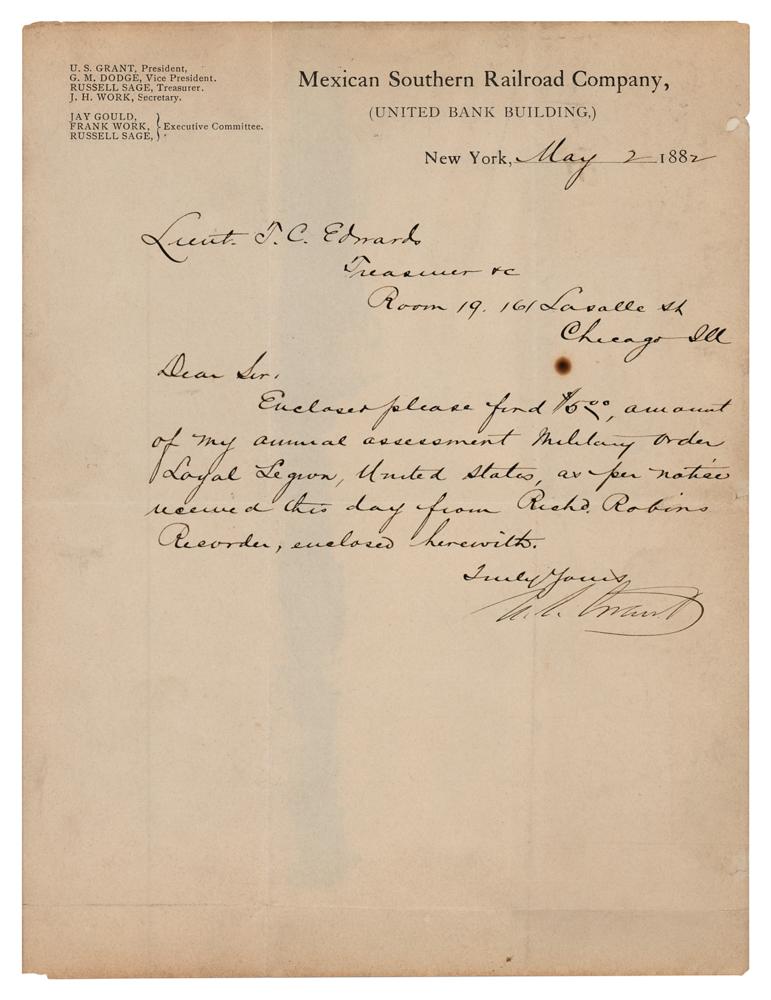 U. S. GRANT, President,
G. M. DODGE, Vice President.
RUSSELL SAGE, Treasurer.
J. H. WORK, Secretary.
JAY GOULD,
FRANK WORK, } Executive Committee.
RUSSELL SAGE,
Mexican Southern Railroad Company,
(UNITED BANK BUILDING,)
New York, May 2 1882
Lieut. T. C. Edwards
Treasurer &c
Room 19. 161 Lasalle St
Chicago Ill
Dear Sir.
Enclosed please find $5.00, amount
of my annual assessment Military Order
Loyal Legion, United States, as per notice
received this day from Richd. Robins
Recorder, enclosed herewith.
Truly Yours
U. S. Grant